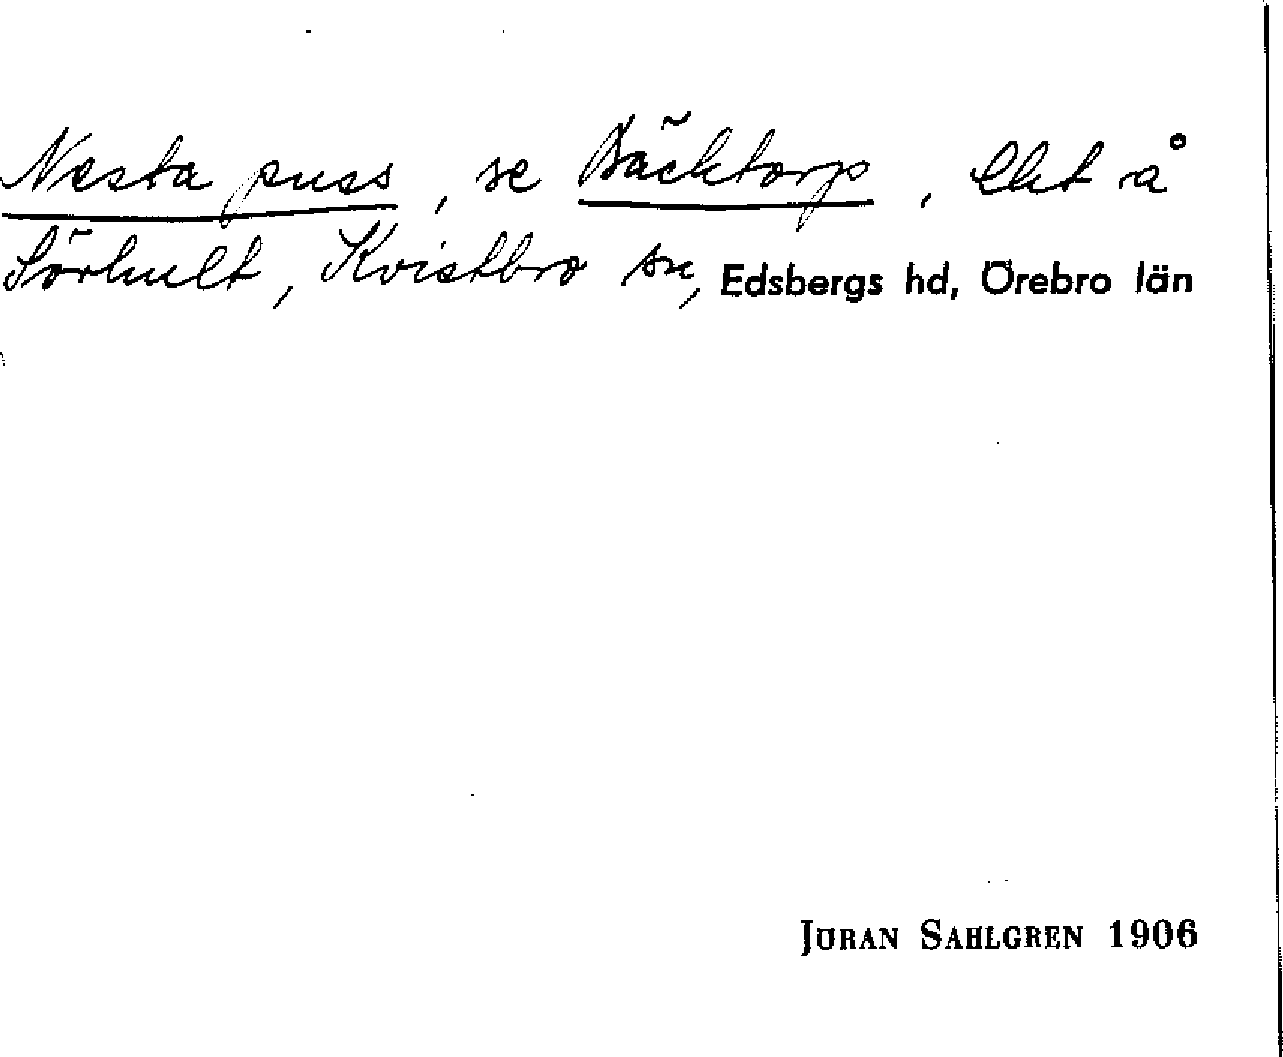 Nesta puss, se Bäcktorp, lht å
Sörhult, Kvistbro sn, Edsbergs hd, Örebro län
JÖRAN SAHLGREN 1906